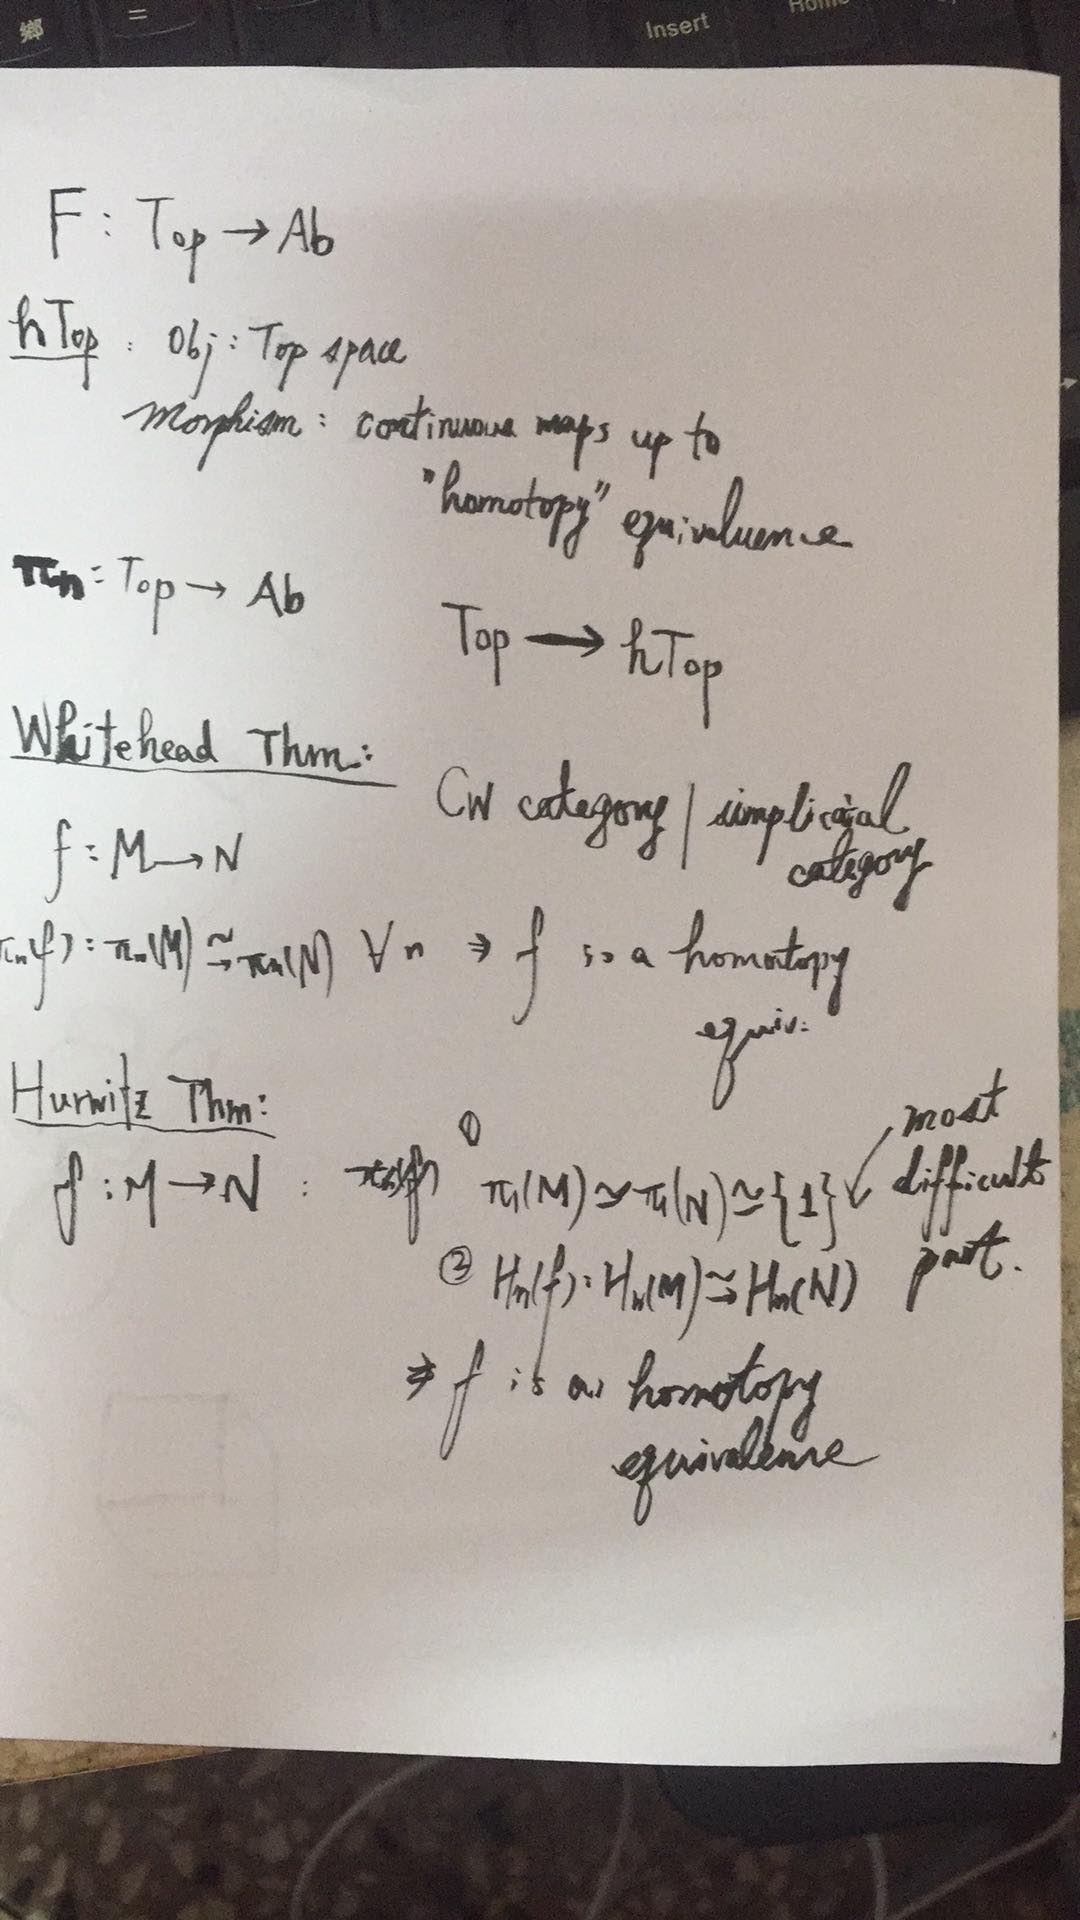 鄉 =
Insert
Home
F : Top → Ab
hTop : Obj : Top space
Morphism : continuous maps up to
"homotopy" equivaluence
πn : Top → Ab
Top → hTop
Whitehead Thm:
CW category / simplicial
category
f : M → N
πn(f) : πn(M) ⥲ πn(N) ∀n ⇒ f is a homotopy
equiv.
Hurwitz Thm:
f : M → N :
① π1(M) ≃ π1(N) ≃ {1} ↙ most
difficult
part.
② Hn(f) : Hn(M) ⥲ Hn(N)
⇒ f is a homotopy
equivalence